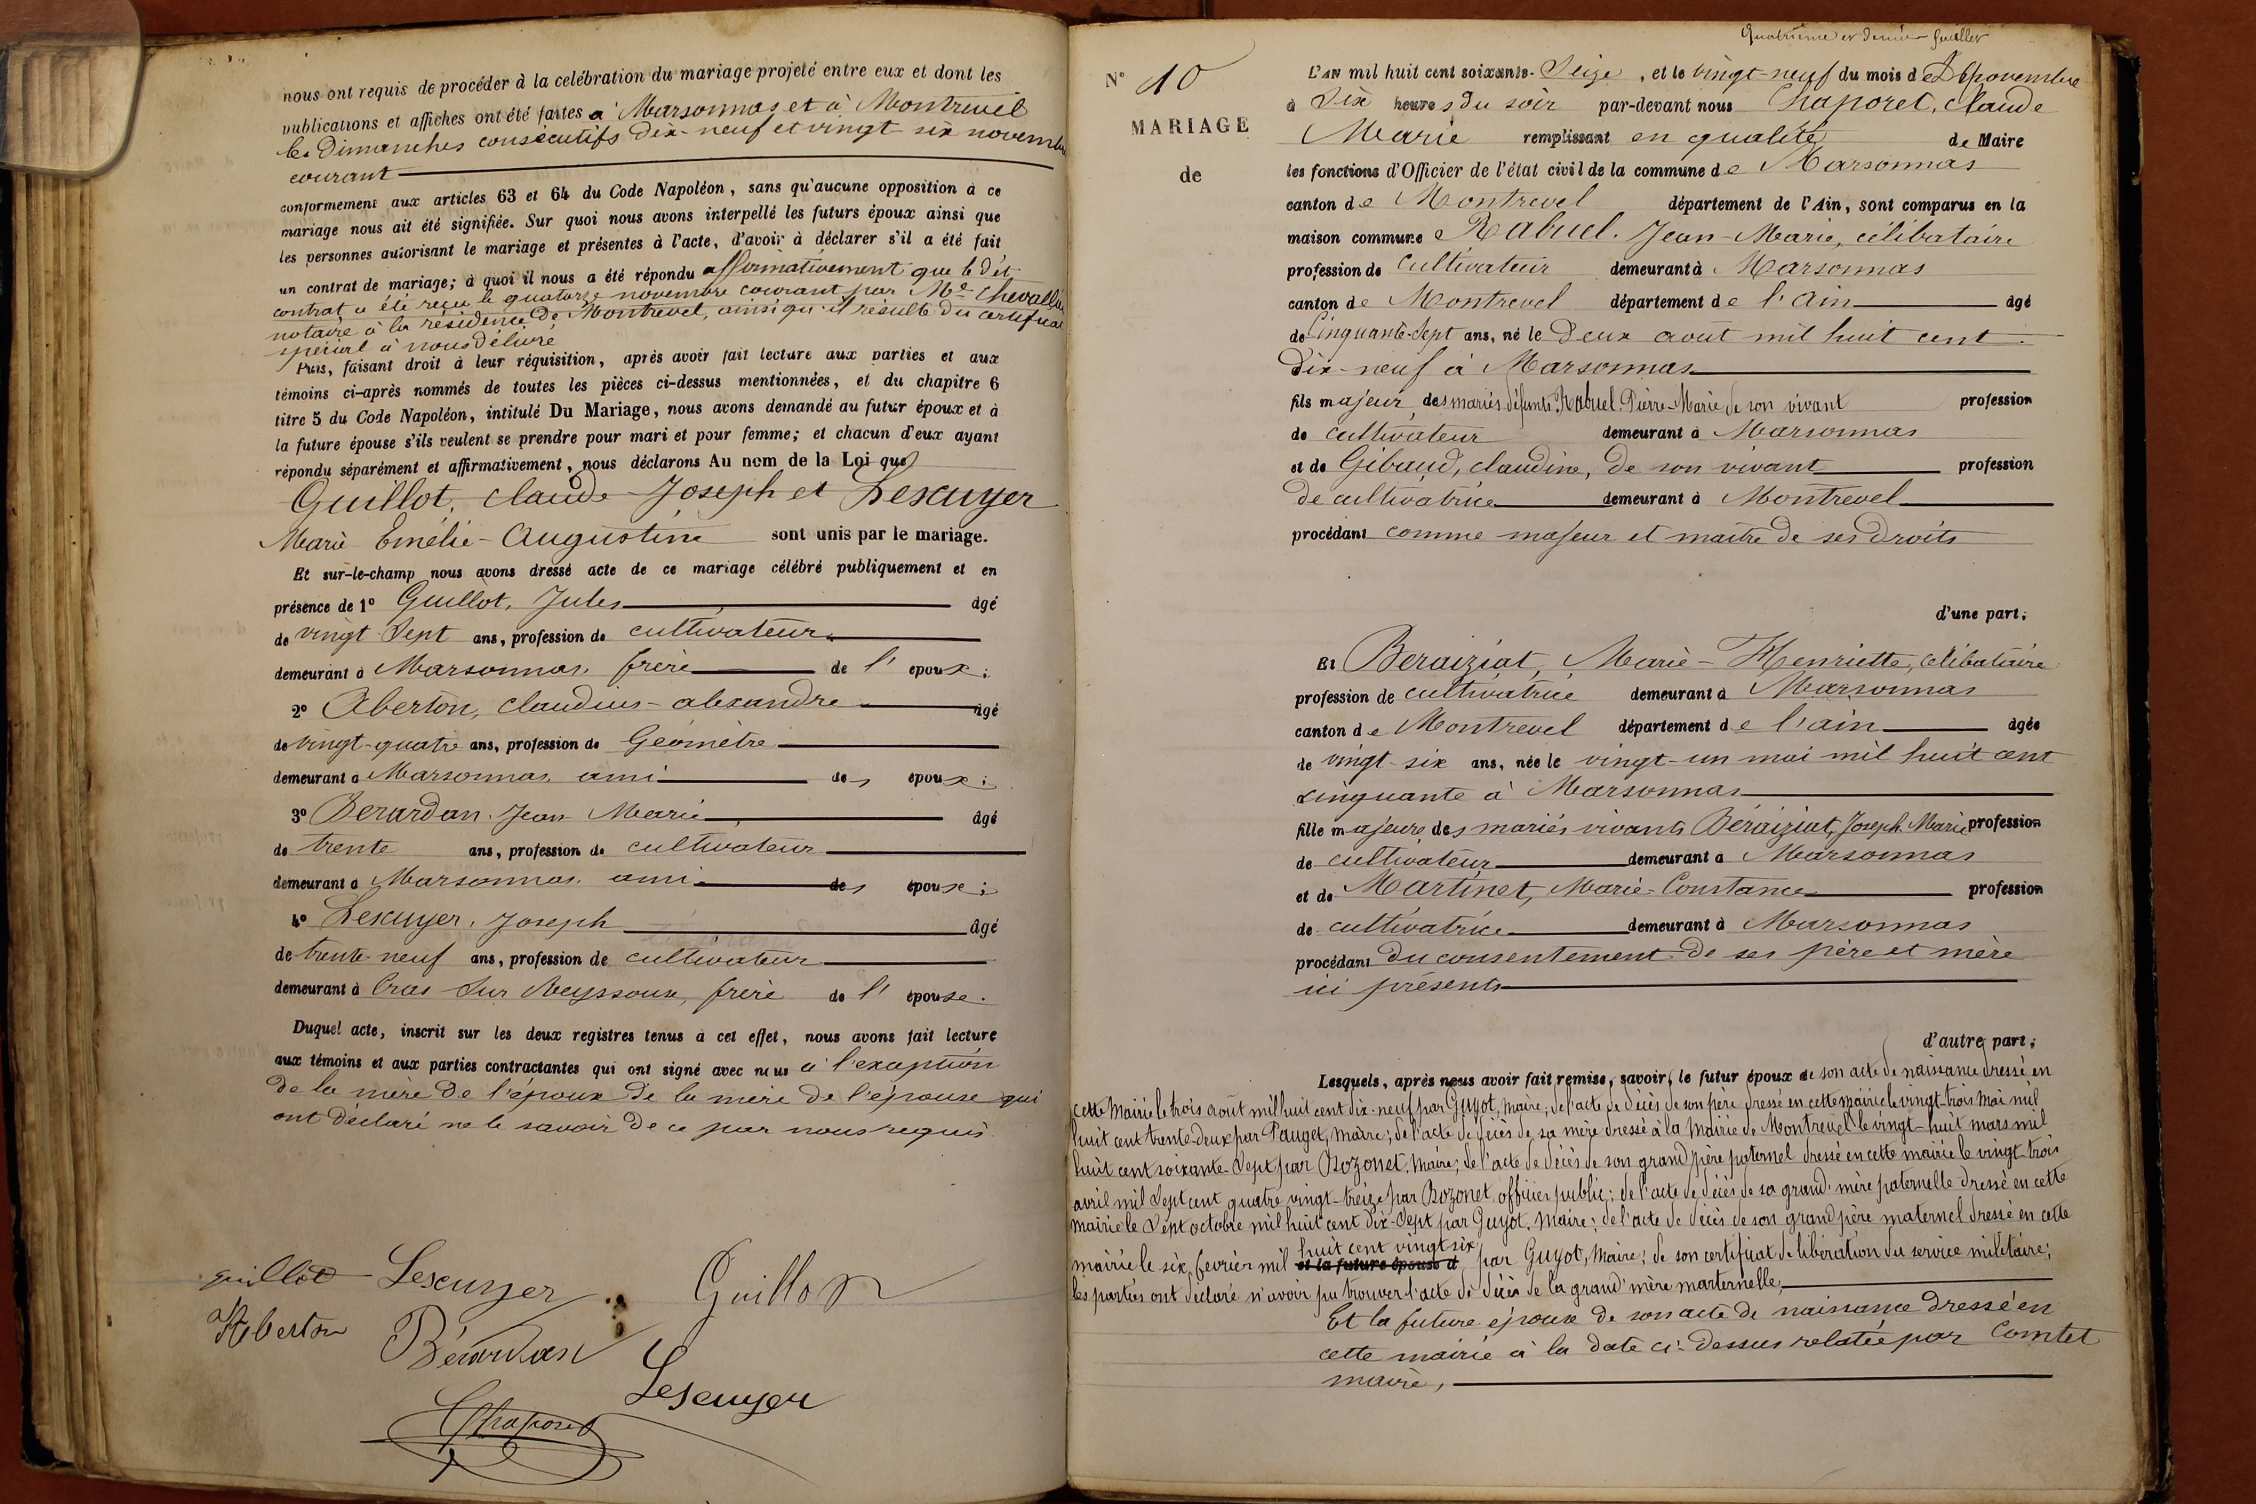 nous ont requis de procéder à la celébration du mariage projeté entre eux et dont les
publications et affiches ont été faites à Marsonnas et à Montrevel
les Dimanches consécutifs dix-neuf et vingt six novembre
courant
conformement aux articles 63 et 64 du Code Napoléon, sans qu'aucune opposition à ce
mariage nous ait été signifiée. Sur quoi nous avons interpellé les futurs époux ainsi que
les personnes autorisant le mariage et présentes à l'acte, d'avoir à déclarer s'il a été fait
un contrat de mariage; à quoi il nous a été répondu affirmativement que le dit
contrat a été reçu le quatorze novembre courant par Me Chevallier
notaire à la résidence de Montrevel, ainsi qu'il résulte du certificat
spécial à nous délivré
Puis, faisant droit à leur réquisition, après avoir fait lecture aux parties et aux
témoins ci-après nommés de toutes les pièces ci-dessus mentionnées, et du chapitre 6
titre 5 du Code Napoléon, intitulé Du Mariage, nous avons demandé au futur époux et à
la future épouse s'ils veulent se prendre pour mari et pour femme; et chacun d'eux ayant
répondu séparément et affirmativement, nous déclarons Au nom de la Loi que
Guillot, Claude-Joseph et Lescuyer
Marie Emélie-Augustine sont unis par le mariage.
Et sur-le-champ nous avons dressé acte de ce mariage célébré publiquement et en
présence de 1° Guillot, Jules âgé
de vingt-sept ans, profession de cultivateur
demeurant à Marsonnas, frère de l' epoux;
2° Aberton, Claudius-alexandre âgé
de vingt-quatre ans, profession de Géomètre
demeurant à Marsonnas, ami des epoux;
3° Berardan Jean Marie âgé
de trente ans, profession de cultivateur
demeurant à Marsonnas, ami des époux;
4° Lescuyer, Joseph âgé
de trente-neuf ans, profession de cultivateur
demeurant à Cras sur Reyssouze, frère de l' épouse.
Duquel acte, inscrit sur les deux registres tenus à cet effet, nous avons fait lecture
aux témoins et aux parties contractantes qui ont signé avec nous à l'exeption
de la mère de l'époux de la mère de l'épouse qui
ont déclaré ne le savoir de ce par nous requis.
guillot Lescuyer Guillot
Aberton Bérardan
Lescuyer
Chaporet
Quatrième et dernier feuillet
N° 10
MARIAGE
de
L'AN mil huit cent soixante-seize, et le vingt-neuf du mois de novembre
à six heures du soir par-devant nous Chaporet, Claude
Marie remplissant en qualité de Maire
les fonctions d'Officier de l'état civil de la commune de Marsonnas
canton de Montrevel département de l'Ain, sont comparus en la
maison commune Rabuel, Jean-Marie, célibataire
profession de cultivateur demeurant à Marsonnas
canton de Montrevel département de l'ain âgé
de Cinquante-sept ans, né le deux aout mil huit cent
dix-neuf à Marsonnas
fils majeur des mariés défunts Rabuel Pierre-Marie de son vivant profession
de cultivateur demeurant à Marsonnas
et de Gibaud, Claudine, de son vivant profession
de cultivatrice demeurant à Montrevel
procédant comme majeur et maître de ses droits
d'une part;
Et Beraiziat, Marie-Henriette, célibataire
profession de cultivatrice demeurant à Marsonnas
canton de Montrevel département de l'ain âgée
de vingt-six ans, née le vingt-un mai mil huit cent
cinquante à Marsonnas
fille majeure des mariés vivants Béraiziat, Joseph Marie profession
de cultivateur demeurant à Marsonnas
et de Martinet, Marie-Constance profession
de cultivatrice demeurant à Marsonnas
procédant du consentement de ses père et mère
ici présents
d'autre part;
Lesquels, après nous avoir fait remise, savoir, le futur époux de son acte de naissance dressé en
cette Mairie le trois août mil huit cent dix-neuf par Guyot, maire; de l'acte de décès de son père dressé en cette mairie le vingt-trois mai mil
huit cent trente-deux par Pauget, maire; de l'acte de décès de sa mère dressé à la Mairie de Montrevel le vingt-huit mars mil
huit cent soixante-sept par Bozonet, maire; de l'acte de décès de son grand père paternel dressé en cette mairie le vingt-trois
avril mil sept cent quatre vingt-treize par Bozonet, officier public; de l'acte de décès de sa grand'mère paternelle dressé en cette
mairie le sept octobre mil huit cent dix-sept par Guyot, maire; de l'acte de décès de son grand père maternel dressé en cette
mairie le six fevrier mil huit cent vingt six et la future épouse d par Guyot, Maire; de son certificat de libération du service militaire;
les parties ont déclaré n'avoir pu trouver l'acte de décès de la grand'mère marternelle,
Et la future épouse de son acte de naissance dressé en
cette mairie à la date ci-dessus relatée par Comtet
maire,